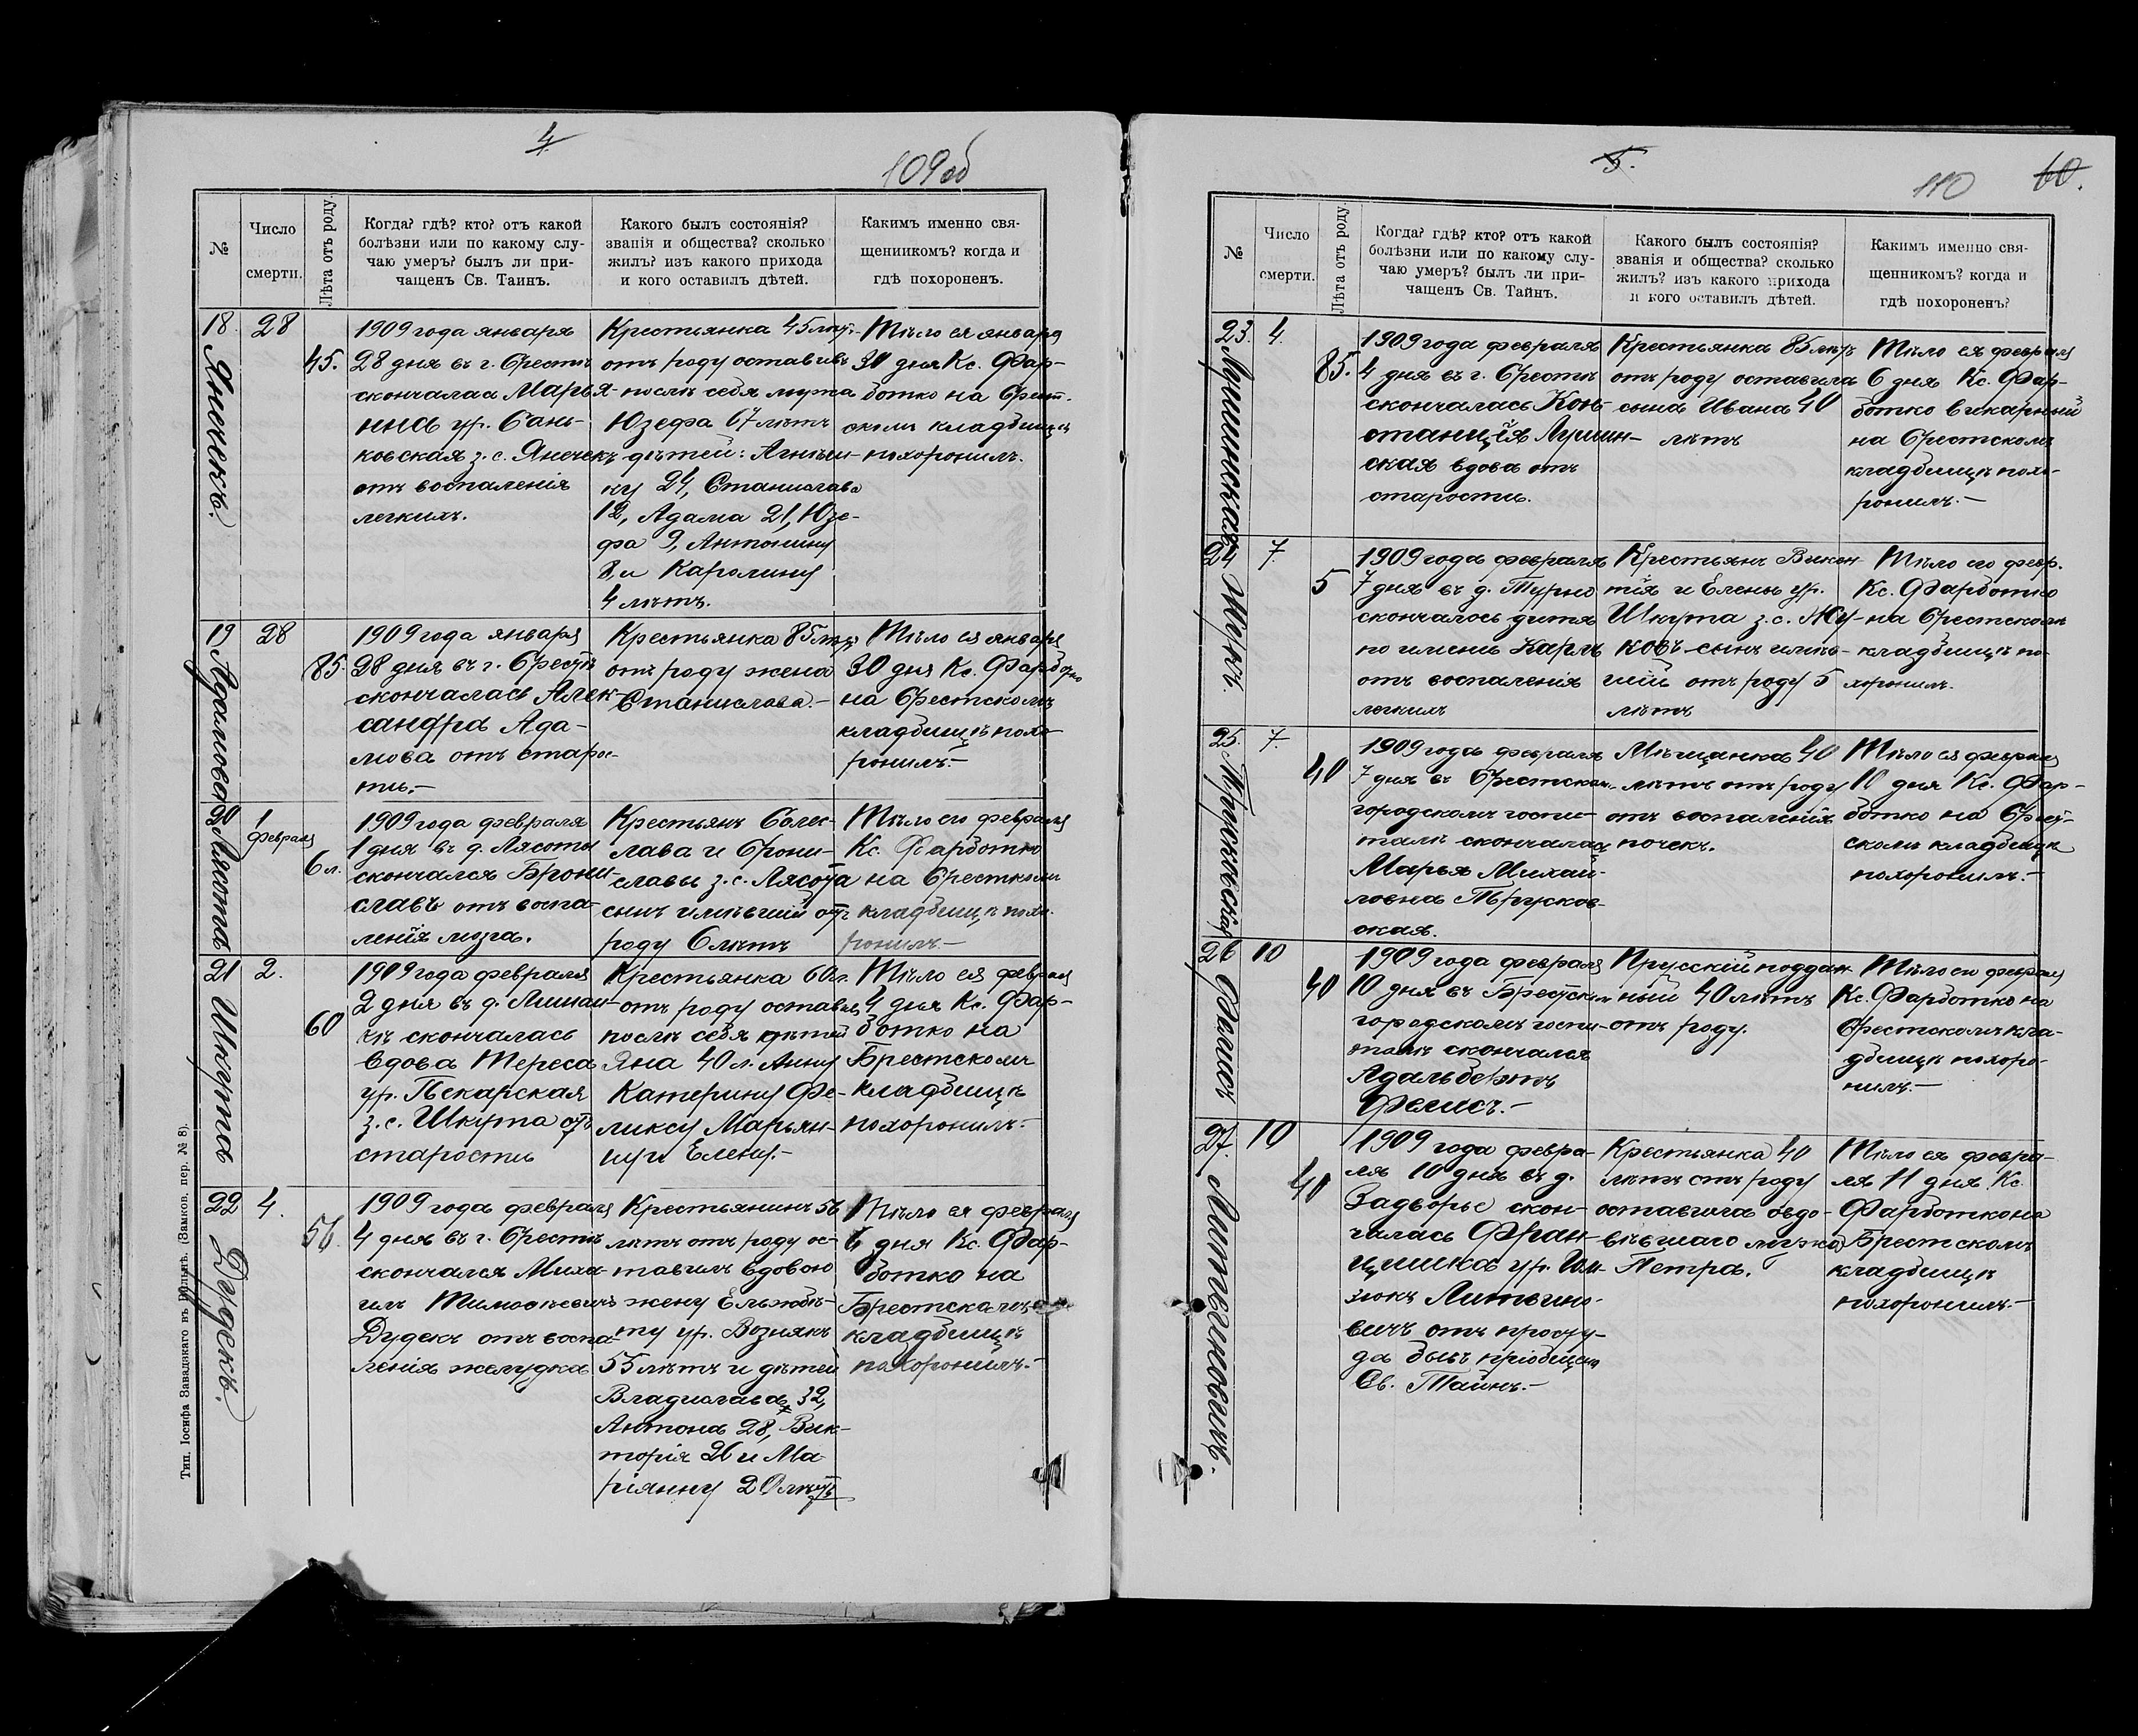 4
109 об
№
Число
смерти.
Лѣта отъ роду.
Когда? гдѣ? кто? отъ какой
болѣзни или по какому слу-
чаю умеръ? былъ ли при-
чащенъ Св. Таинъ.
Какого былъ состоянія?
званія и общества? сколько
жилъ? изъ какого прихода
и кого оставилъ дѣтей.
Какимъ именно свя-
щенникомъ? когда и
гдѣ похороненъ.
18
Янечекъ.
28
45.
1909 года января
28 дня въ г. Брестѣ
скончалась Марья-
нна ур. Бань-
ковская з. с. Янечекъ
отъ воспаленія
легкихъ.
Крестьянка 45 лѣтъ
отъ роду оставивъ
послѣ себя мужа
Юзефа 67 лѣтъ
дѣтей: Агнѣш-
ку 24, Станислава
12, Адама 21, Юзе-
фа 9, Антонину
8, и Каролину
4 лѣтъ.
Тѣло ея января
30 дня Кс. Фар-
ботко на Брест-
скомъ кладбищѣ
похоронилъ.
19
Адамова
28
85.
1909 года января
28 дня въ г. Брестѣ
скончалась Алек-
сандра Ада-
мова отъ старос-
ти.-
Крестьянка 85 лѣтъ
отъ роду жена
Станислава.-
Тѣло ея января
30 дня Кс. Фарботко
на Брестскомъ
кладбищѣ похо-
ронилъ.-
20
Лясота
1
февраля
6 л.
1909 года февраля
1 дня въ д. Лясоты
скончался Брони-
славъ отъ воспа-
ленія мозга.
Крестьянъ Болес-
лава и Брони-
славы з. с. Лясота
сынъ имѣвшій отъ
роду 6 лѣтъ
Тѣло его февраля
Кс. Фарботко
на Брестскомъ
кладбищѣ похо-
ронилъ-
21
Шкута
2.
60
1909 года февраля
2 дня въ д.
скончалась
вдова Тереса
ур. Пекарская
з. с. Шкута отъ
старости
Крестьянка 60 л.
отъ роду оставивъ
послѣ себя дѣтей
Яна 40 л. Анну
Катерину Фе-
ликсу Марьян-
ну и Елену.-
Тѣло ея февраля
4 дня Кс. Фар-
ботко на
Брестскомъ
кладбищѣ
похоронилъ.-
22
Дудекъ.
4.
56.
1909 года февраля
4 дня въ г. Брестѣ
скончался Миха-
илъ Тимоѳеевичъ
Дудекъ отъ воспа-
ленія желудка
Крестьянинъ 56
лѣтъ отъ роду ос-
тавилъ вдовою
жену Ельжбѣ-
ту ур. Вознякъ
55 лѣтъ и дѣтей
Владислава 32,
Антона 28, Вик-
торія 26 и Ма-
ріянну 20 лѣтъ
Тѣло ея февраля
6 дня Кс. Фар-
ботко на
Брестскомъ
кладбищѣ
похоронилъ.-
Тип. Іосифа Завадзкаго въ Вильнѣ. (Замков. пер. № 8).
5.
110
60.
№
Число
смерти.
Лѣта отъ роду.
Когда? гдѣ? кто? отъ какой
болѣзни или по какому слу-
чаю умеръ? былъ ли при-
чащенъ Св. Тайнъ.
Какого былъ состоянія?
званія и общества? сколько
жилъ? изъ какого прихода
и кого оставилъ дѣтей.
Какимъ именно свя-
щенникомъ? когда и
гдѣ похороненъ?
23.
Лушинская
4.
85.
1909 года февраля
4 дня въ г. Брестѣ
скончалась Кон-
станція Лушин-
ская вдова отъ
старости.
Крестьянка 85 лѣтъ
отъ роду оставила
сына Ивана 40
лѣтъ
Тѣло ея февраля
6 дня Кс. Фар-
ботко викарный
на Брестскомъ
кладбищѣ похо-
ронилъ.-
24
Жукъ.
7.
5
1909 года февраля
7 дня въ д. Турно
скончалось дитя
по имени Карлъ
отъ воспаленія
легкихъ
Крестьянъ Викен-
тія и Елены ур.
Шкута з. с. Жу-
ковъ сынъ имѣв-
шій отъ роду 5
лѣтъ
Тѣло его февр.
Кс. Фарботко
на Брестскомъ
кладбищѣ по-
хоронилъ.
25.
7.
40
1909 года февраля
7 дня въ Брестском
городскомъ госпи-
талѣ скончалась
Марья Михай-
ловна Трусков-
ская.
Мѣщанка 40
лѣтъ отъ роду
отъ воспаленія
почекъ.
Тѣло ея февраля
10 дня Кс. Фар-
ботко на Брест-
скомъ кладбищѣ
похоронилъ.-
26
Фелисъ
10
40
1909 года февраля
10 дня въ Брестском
городскомъ госпи-
талѣ скончался
Адальбертъ
Фелисъ.-
Прусскій поддан-
ный 40 лѣтъ
отъ роду.
Тѣло его февраля
Кс. Фарботко на
Брестскомъ кла-
дбищѣ похоро-
нилъ.-
27.
Литвиновичъ.
10
40
1909 года февра-
ля 10 дня въ д.
Задворье скон-
чалась Фран-
цишка ур.
Литвино-
вичъ отъ просту-
да бывъ пріобщена
Св. Тайнъ.-
Крестьянка 40
лѣтъ отъ роду
оставила овдо-
вѣвшаго мужа
Петра.
Тѣло ея февра-
ля 11 дня Кс.
Фарботко на
Брестскомъ
кладбищѣ
похоронилъ.-